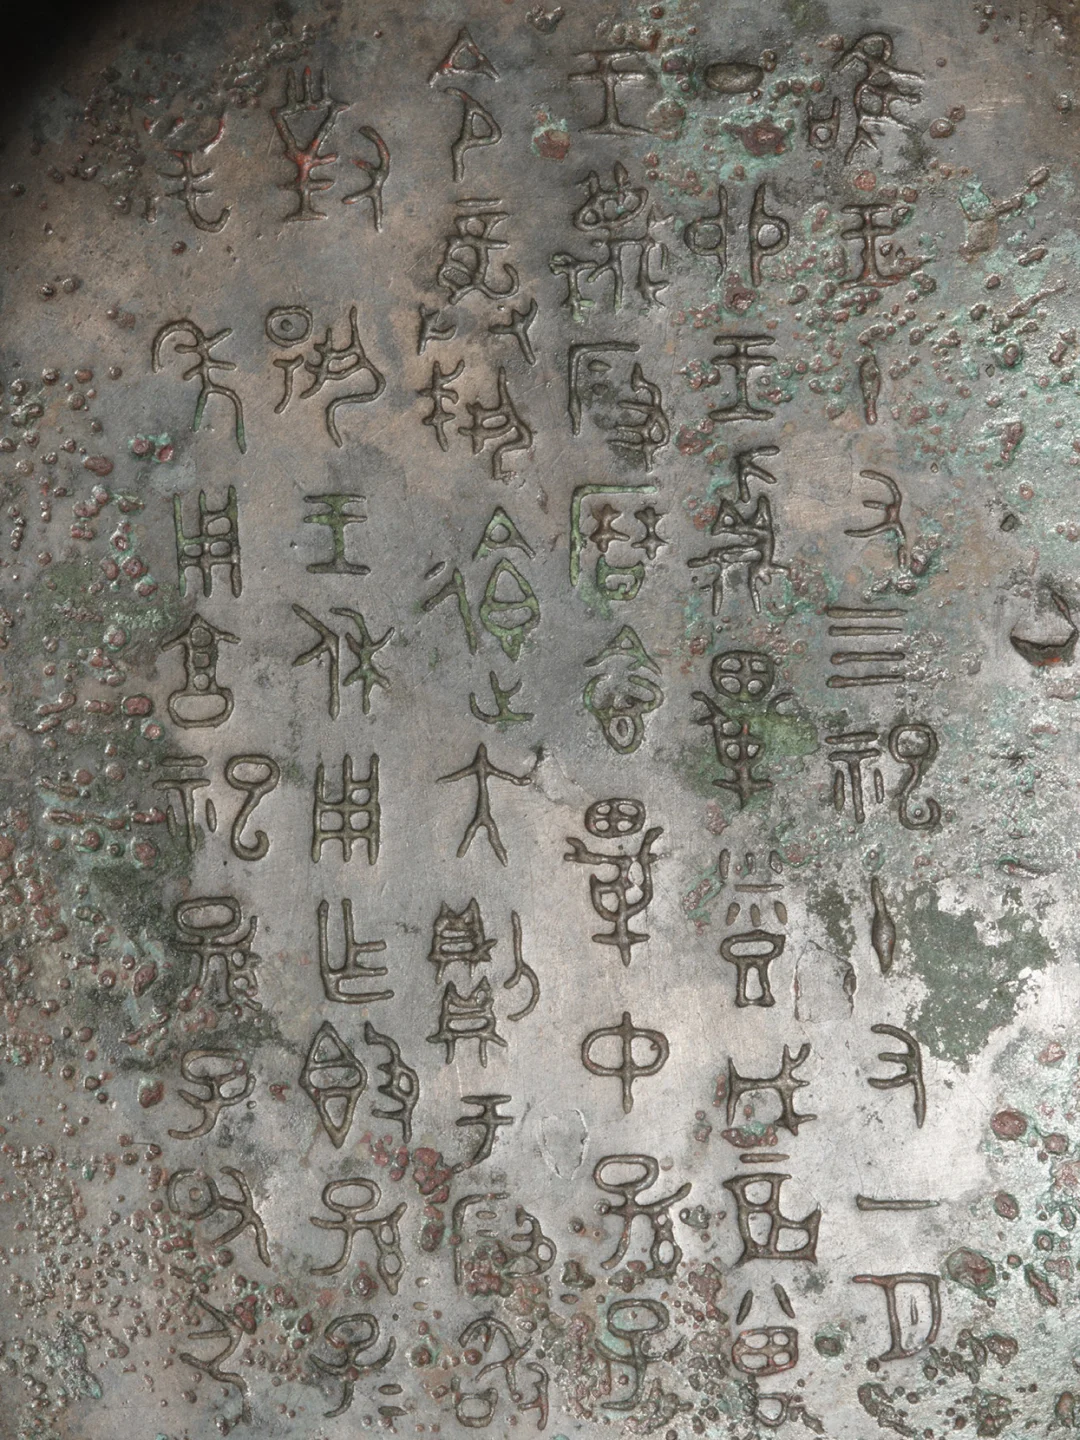 唯王十又四祀十又一月
丁卯王鼒畢烝戊辰曾
王蔑段曆念畢仲孫子
令龏𢦚遺大則于段敢
對揚王休用作簋孫=子=
萬年用享祀孫子取引